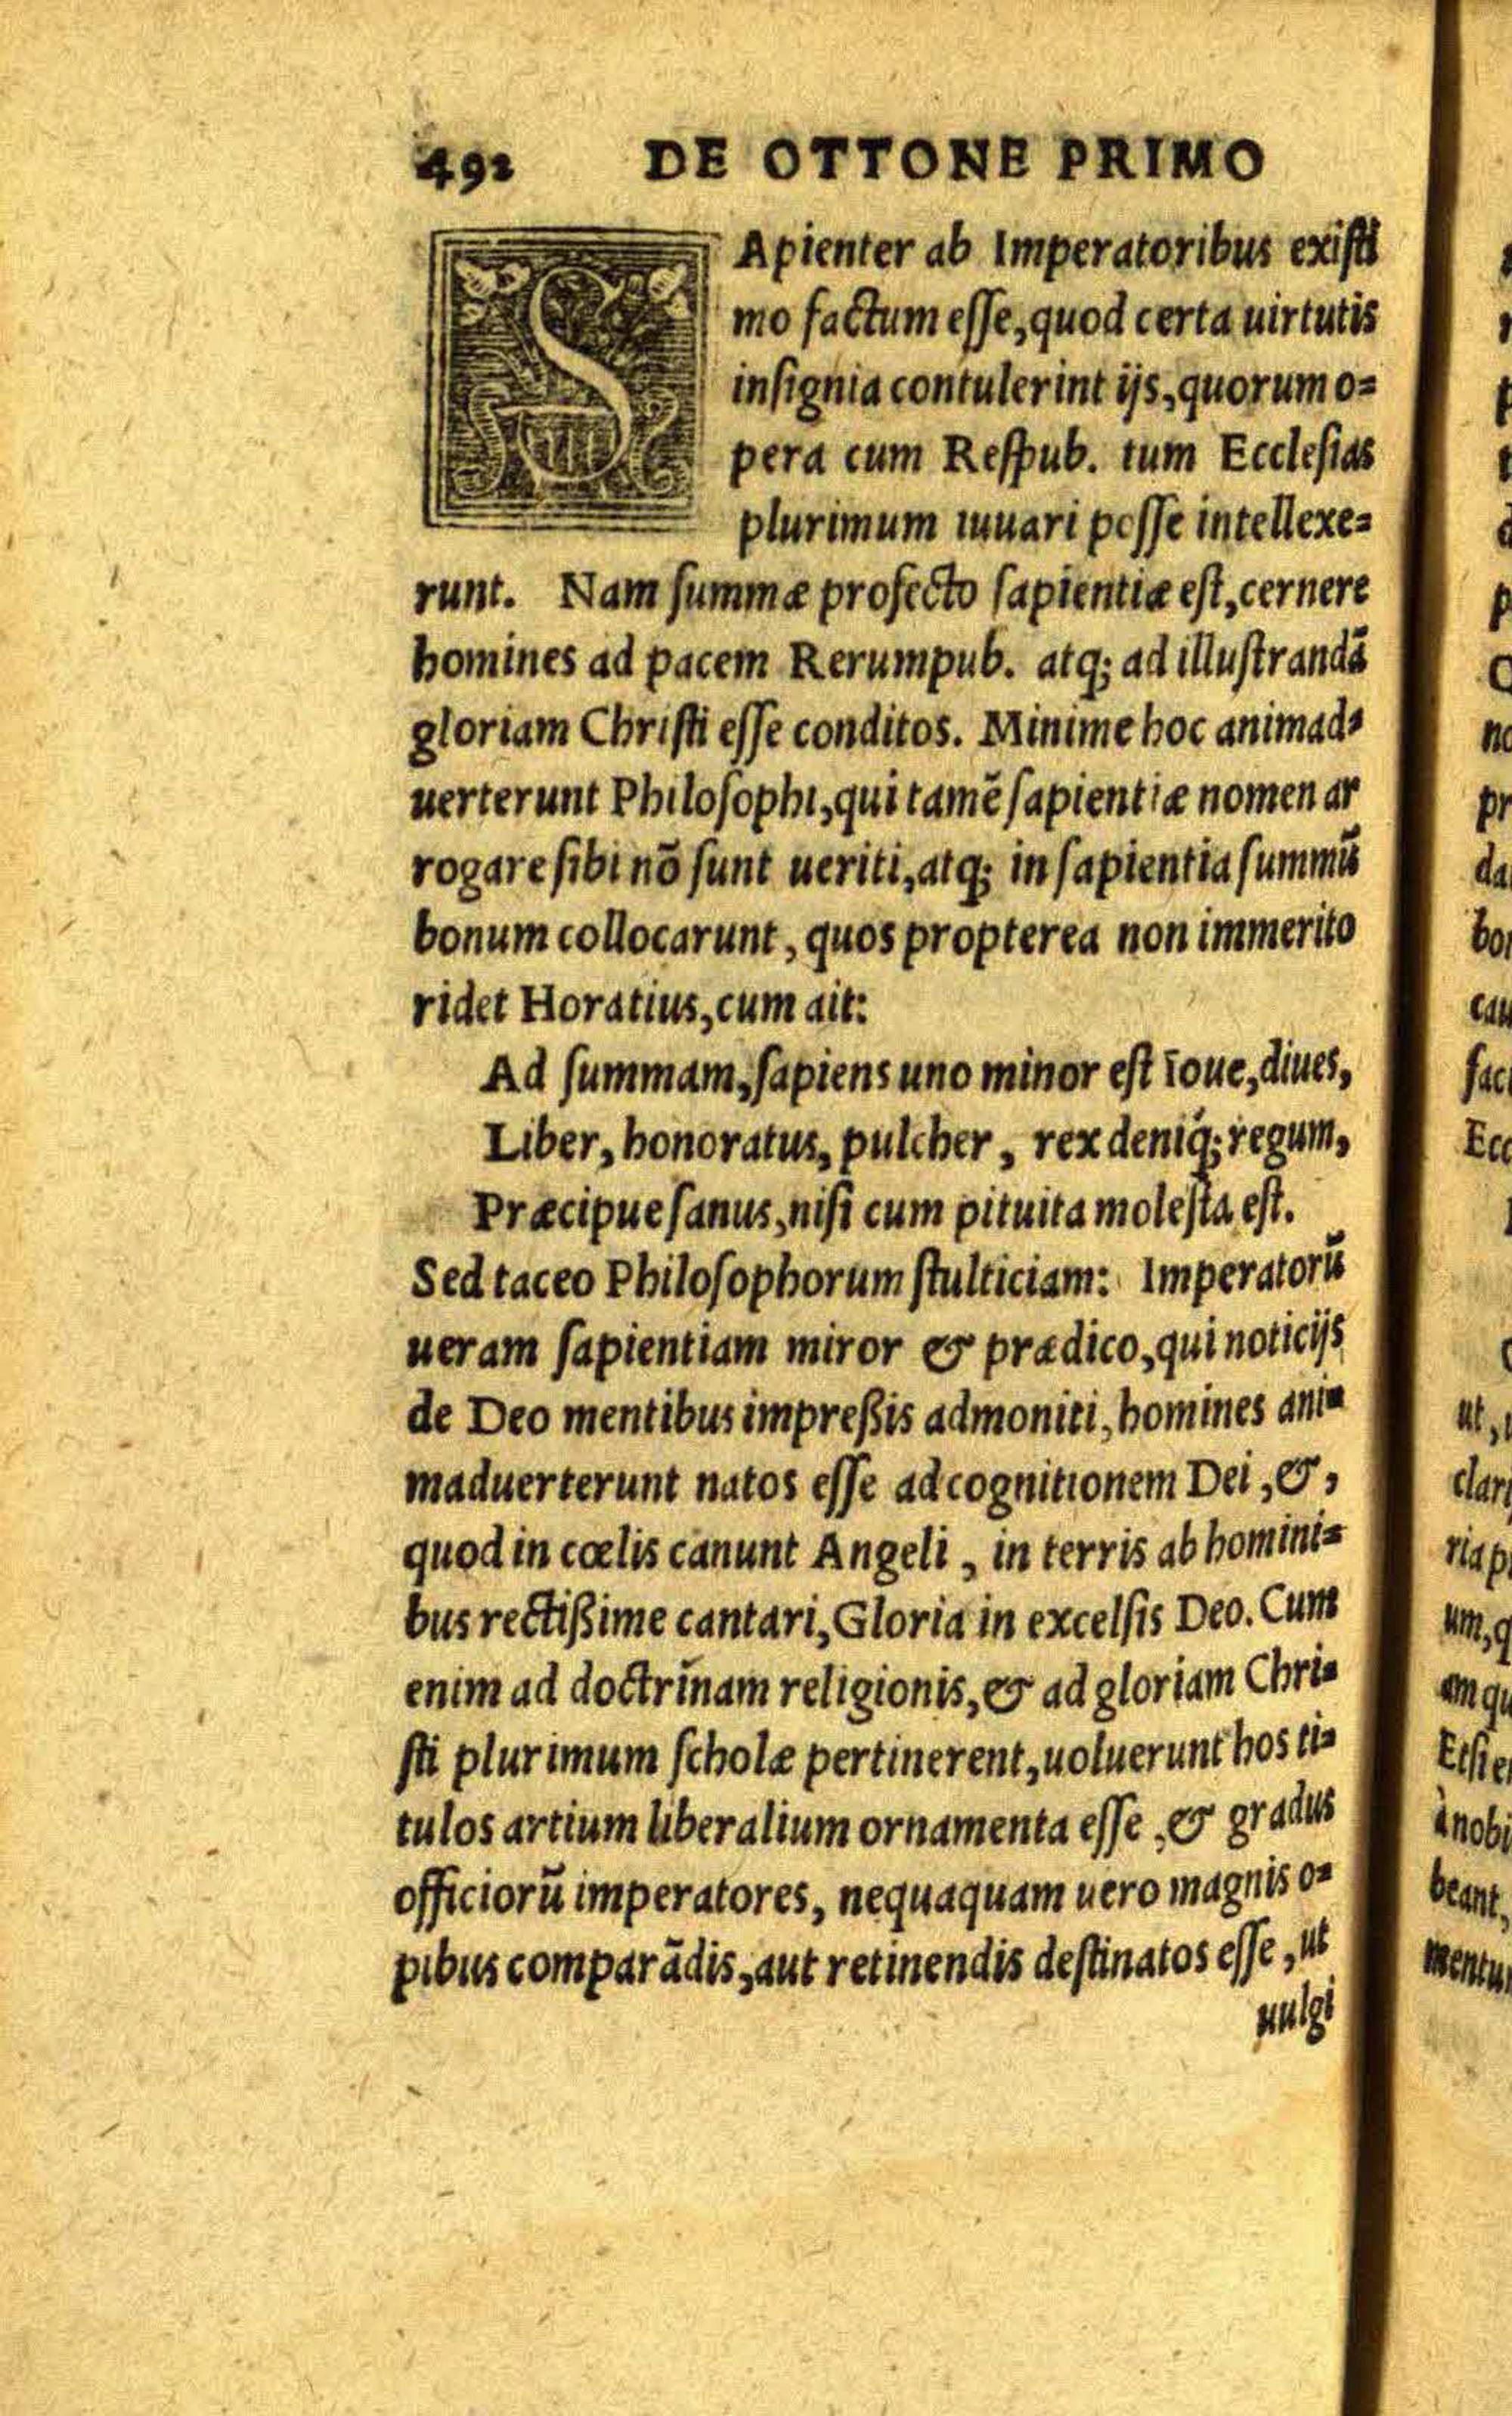 492 DE OTTONE PRIMO
SApienter ab Imperatoribus existi
mo factum esse, quod certa uirtutis
insignia contulerint ijs, quorum o=
pera cum Respub. tum Ecclesias
plurimum iuuari posse intellexe=
runt. Nam summæ profecto sapientiæ est, cernere
homines ad pacem Rerumpub. atq; ad illustrandā
gloriam Christi esse conditos. Minime hoc animad=
uerterunt Philosophi, qui tamē sapientiæ nomen ar
rogare sibi nō sunt ueriti, atq; in sapientia summū
bonum collocarunt, quos propterea non immerito
ridet Horatius, cum ait:
Ad summam, sapiens uno minor est Ioue, diues,
Liber, honoratus, pulcher, rex deniq́; regum,
Præcipue sanus, nisi cum pituita molesta est.
Sed taceo Philosophorum stulticiam: Imperatorū
ueram sapientiam miror & prædico, qui noticijs
de Deo mentibus impreßis admoniti, homines ani=
maduerterunt natos esse ad cognitionem Dei, &,
quod in cœlis canunt Angeli, in terris ab homini=
bus rectißime cantari, Gloria in excelsis Deo. Cum
enim ad doctrinam religionis, & ad gloriam Chri=
sti plurimum scholæ pertinerent, uoluerunt hos ti=
tulos artium liberalium ornamenta esse, & gradus
officiorū imperatores, nequaquam uero magnis o=
pibus comparādis, aut retinendis destinatos esse, ut
uulgi